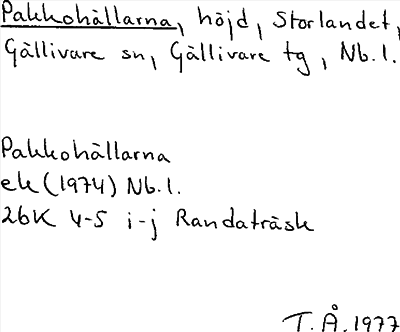 Pakkohällarna, höjd, Storlandet,
Gällivare sn, Gällivare tg, Nb.l.
Pakkohällarna
ek (1974) Nb.l.
26K 4-5 i-j Randaträsk
T.Å. 1977